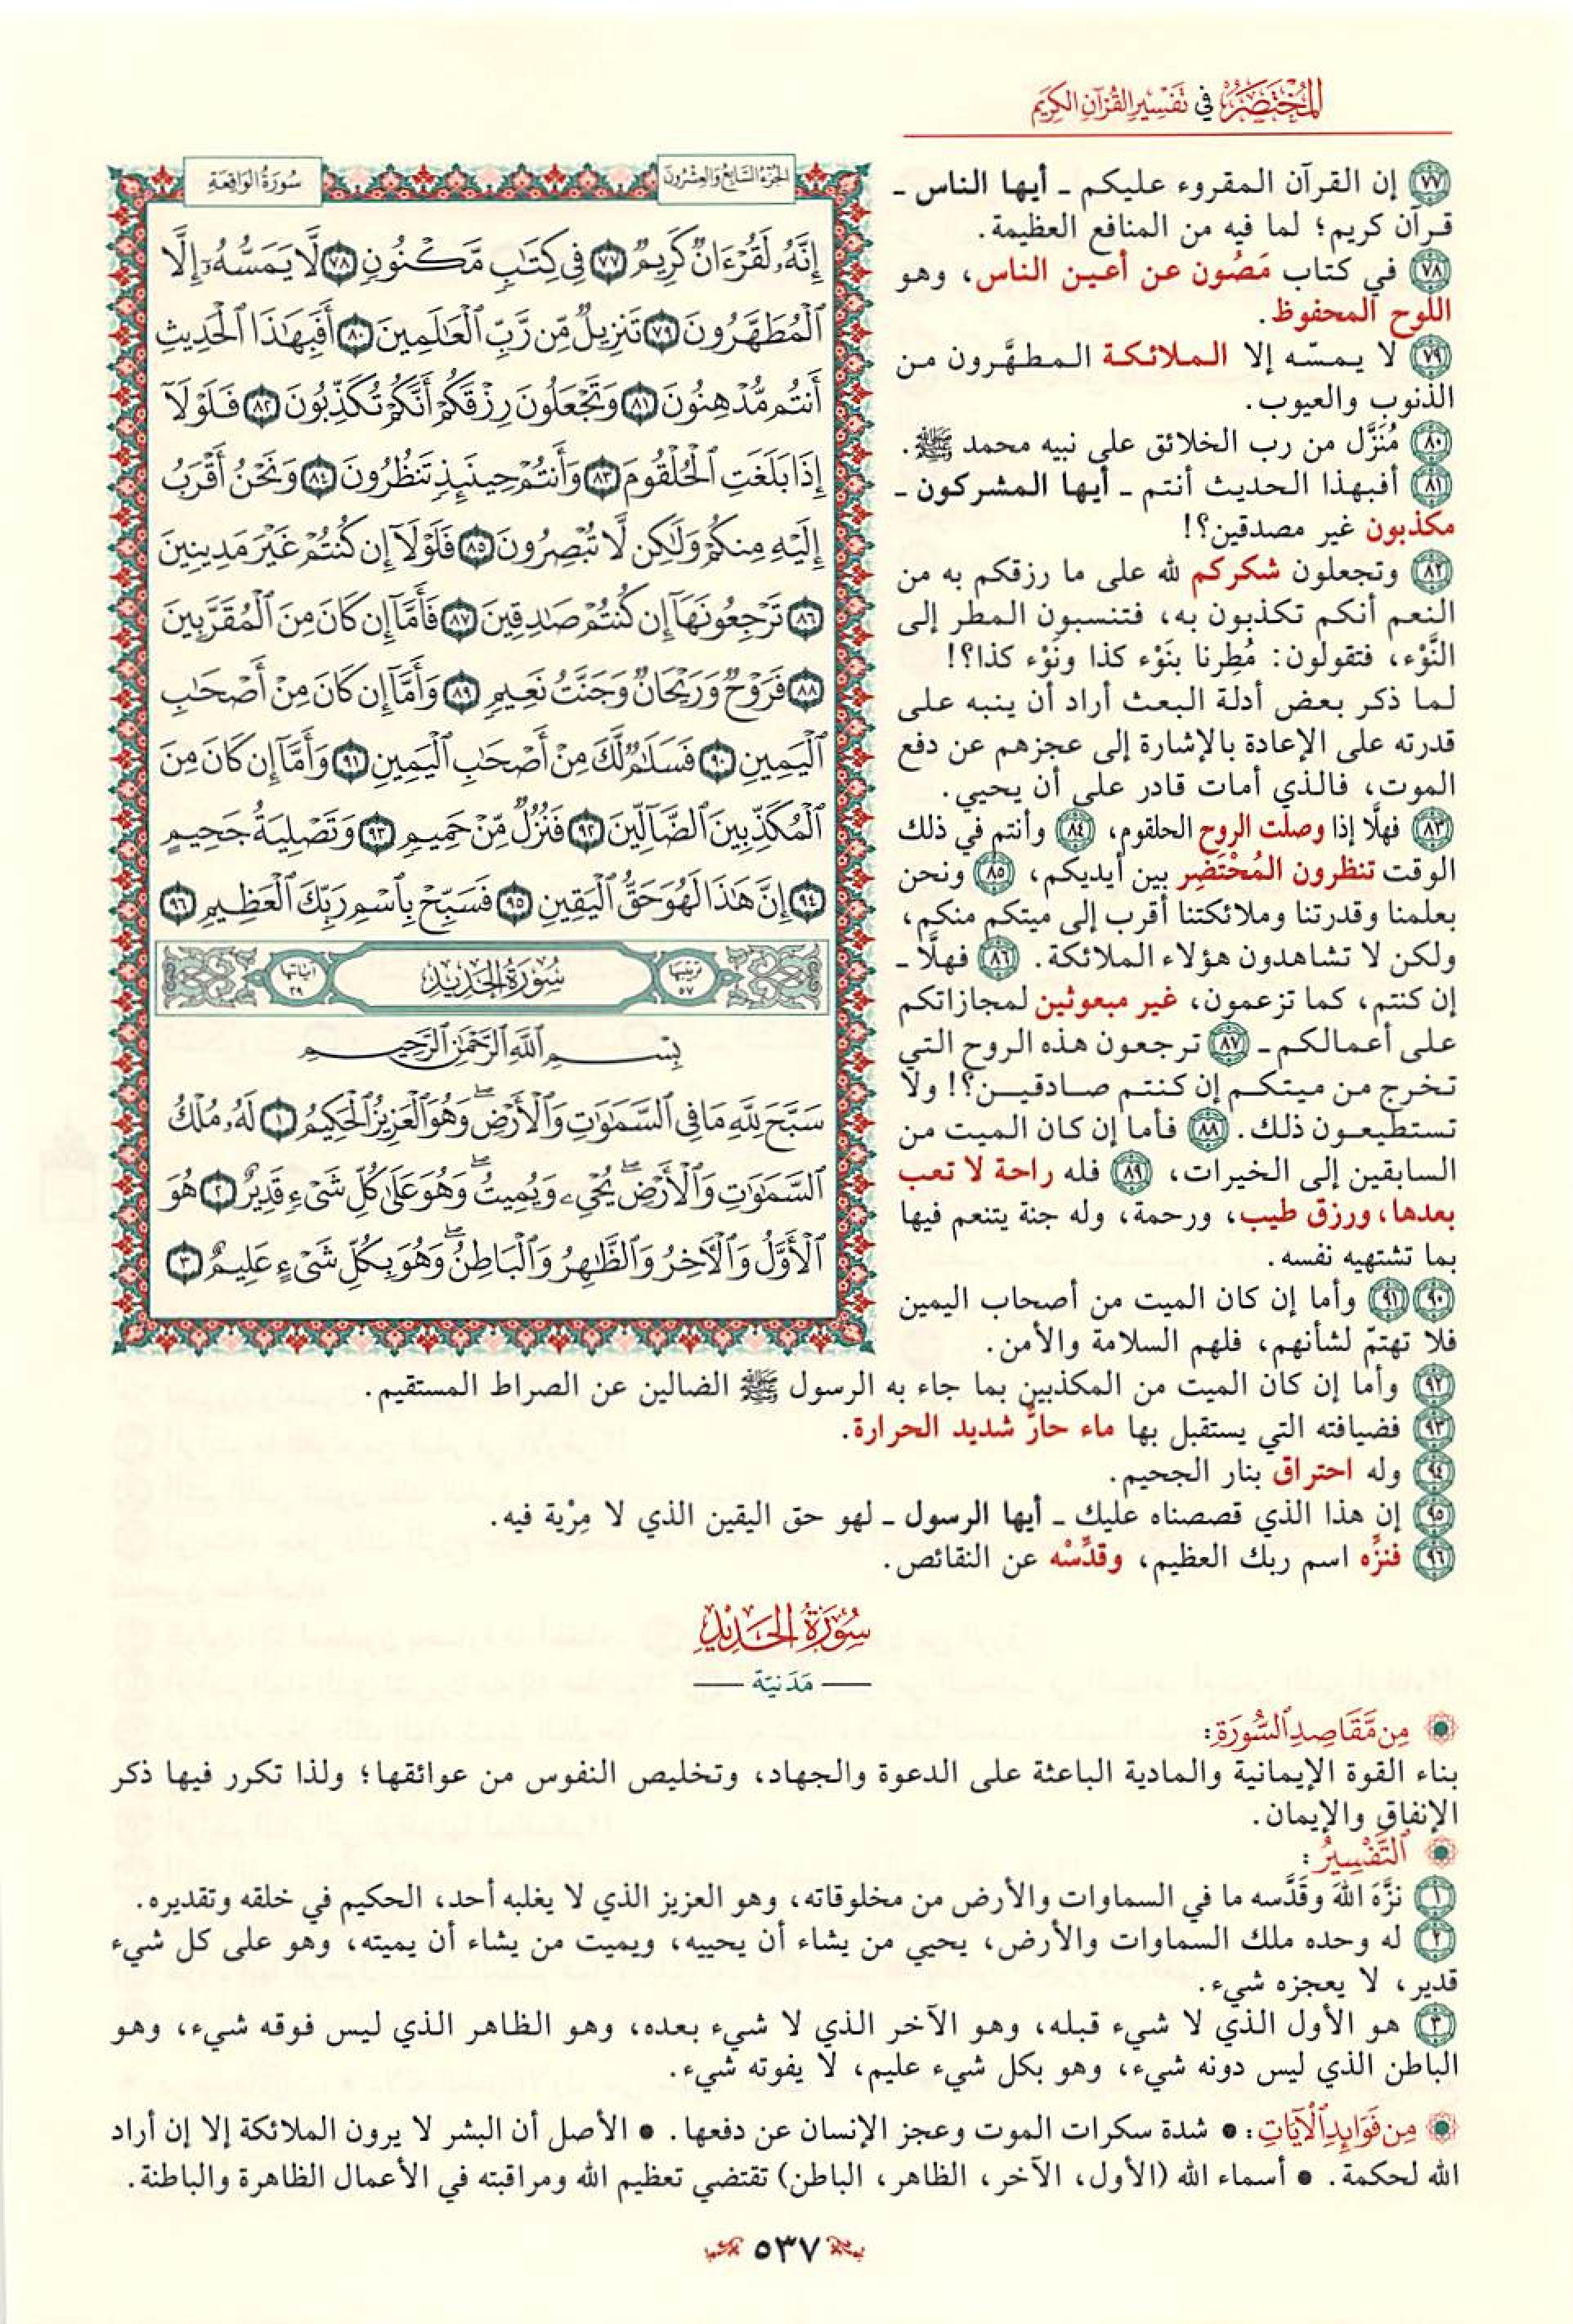 المُخْتَصَرُ في تَفْسِيرِ القُرْآنِ الكَرِيمِ
الجُزْءُ السَّابِعُ وَالعِشْرُونَ
سُورَةُ الوَاقِعَةِ
إِنَّهُۥ لَقُرْءَانٌ كَرِيمٌ ٧٧ فِي كِتَٰبٍ مَّكْنُونٍ ٧٨ لَّا يَمَسُّهُۥٓ إِلَّا
ٱلْمُطَهَّرُونَ ٧٩ تَنزِيلٌ مِّن رَّبِّ ٱلْعَٰلَمِينَ ٨٠ أَفَبِهَٰذَا ٱلْحَدِيثِ
أَنتُم مُّدْهِنُونَ ٨١ وَتَجْعَلُونَ رِزْقَكُمْ أَنَّكُمْ تُكَذِّبُونَ ٨٢ فَلَوْلَآ
إِذَا بَلَغَتِ ٱلْحُلْقُومَ ٨٣ وَأَنتُمْ حِينَئِذٍ تَنظُرُونَ ٨٤ وَنَحْنُ أَقْرَبُ
إِلَيْهِ مِنكُمْ وَلَٰكِن لَّا تُبْصِرُونَ ٨٥ فَلَوْلَآ إِن كُنتُمْ غَيْرَ مَدِينِينَ
٨٦ تَرْجِعُونَهَآ إِن كُنتُمْ صَٰدِقِينَ ٨٧ فَأَمَّآ إِن كَانَ مِنَ ٱلْمُقَرَّبِينَ
٨٨ فَرَوْحٌ وَرَيْحَانٌ وَجَنَّتُ نَعِيمٍ ٨٩ وَأَمَّآ إِن كَانَ مِنْ أَصْحَٰبِ
ٱلْيَمِينِ ٩٠ فَسَلَٰمٌ لَّكَ مِنْ أَصْحَٰبِ ٱلْيَمِينِ ٩١ وَأَمَّآ إِن كَانَ مِنَ
ٱلْمُكَذِّبِينَ ٱلضَّآلِّينَ ٩٢ فَنُزُلٌ مِّنْ حَمِيمٍ ٩٣ وَتَصْلِيَةُ جَحِيمٍ
٩٤ إِنَّ هَٰذَا لَهُوَ حَقُّ ٱلْيَقِينِ ٩٥ فَسَبِّحْ بِٱسْمِ رَبِّكَ ٱلْعَظِيمِ ٩٦
ترتيبها ٥٧ سُورَةُ الحَدِيدِ آياتها ٢٩
بِسْمِ ٱللَّهِ ٱلرَّحْمَٰنِ ٱلرَّحِيمِ
سَبَّحَ لِلَّهِ مَا فِي ٱلسَّمَٰوَٰتِ وَٱلْأَرْضِۖ وَهُوَ ٱلْعَزِيزُ ٱلْحَكِيمُ ١ لَهُۥ مُلْكُ
ٱلسَّمَٰوَٰتِ وَٱلْأَرْضِۖ يُحْيِۦ وَيُمِيتُۖ وَهُوَ عَلَىٰ كُلِّ شَىْءٍ قَدِيرٌ ٢ هُوَ
ٱلْأَوَّلُ وَٱلْءَاخِرُ وَٱلظَّٰهِرُ وَٱلْبَاطِنُۖ وَهُوَ بِكُلِّ شَىْءٍ عَلِيمٌ ٣
٧٧ إن القرآن المقروء عليكم ـ أيها الناس ـ
قرآن كريم؛ لما فيه من المنافع العظيمة.
٧٨ في كتاب مَصُون عن أعين الناس، وهو
اللوح المحفوظ.
٧٩ لا يمسّه إلا الملائكة المطهَّرون من
الذنوب والعيوب.
٨٠ مُنَزَّل من رب الخلائق على نبيه محمد ﷺ.
٨١ أفبهذا الحديث أنتم ـ أيها المشركون ـ
مكذبون غير مصدقين؟!
٨٢ وتجعلون شكركم لله على ما رزقكم به من
النعم أنكم تكذبون به، فتنسبون المطر إلى
النَّوْء، فتقولون: مُطِرنا بنَوْء كذا ونَوْء كذا؟!
لما ذكر بعض أدلة البعث أراد أن ينبه على
قدرته على الإعادة بالإشارة إلى عجزهم عن دفع
الموت، فالذي أمات قادر على أن يحيي.
٨٣ فهلَّا إذا وصلت الروح الحلقوم، ٨٤ وأنتم في ذلك
الوقت تنظرون المُحْتَضِر بين أيديكم، ٨٥ ونحن
بعلمنا وقدرتنا وملائكتنا أقرب إلى ميتكم منكم،
ولكن لا تشاهدون هؤلاء الملائكة. ٨٦ فهلَّا ـ
إن كنتم، كما تزعمون، غير مبعوثين لمجازاتكم
على أعمالكم ـ ٨٧ ترجعون هذه الروح التي
تخرج من ميتكم إن كنتم صادقين؟! ولا
تستطيعون ذلك. ٨٨ فأما إن كان الميت من
السابقين إلى الخيرات، ٨٩ فله راحة لا تعب
بعدها، ورزق طيب، ورحمة، وله جنة يتنعم فيها
بما تشتهيه نفسه.
٩٠ ٩١ وأما إن كان الميت من أصحاب اليمين
فلا تهتمّ لشأنهم، فلهم السلامة والأمن.
٩٢ وأما إن كان الميت من المكذبين بما جاء به الرسول ﷺ الضالين عن الصراط المستقيم.
٩٣ فضيافته التي يستقبل بها ماء حارٌّ شديد الحرارة.
٩٤ وله احتراق بنار الجحيم.
٩٥ إن هذا الذي قصصناه عليك ـ أيها الرسول ـ لهو حق اليقين الذي لا مِرْية فيه.
٩٦ فنزِّه اسم ربك العظيم، وقدِّسْه عن النقائص.
سُورَةُ الحَدِيدِ
مَدَنيّة
مِن مَّقَاصِدِ ٱلسُّورَةِ:
بناء القوة الإيمانية والمادية الباعثة على الدعوة والجهاد، وتخليص النفوس من عوائقها؛ ولذا تكرر فيها ذكر
الإنفاق والإيمان.
ٱلتَّفْسِيرُ:
١ نزَّهَ اللهَ وقَدَّسه ما في السماوات والأرض من مخلوقاته، وهو العزيز الذي لا يغلبه أحد، الحكيم في خلقه وتقديره.
٢ له وحده ملك السماوات والأرض، يحيي من يشاء أن يحييه، ويميت من يشاء أن يميته، وهو على كل شيء
قدير، لا يعجزه شيء.
٣ هو الأول الذي لا شيء قبله، وهو الآخر الذي لا شيء بعده، وهو الظاهر الذي ليس فوقه شيء، وهو
الباطن الذي ليس دونه شيء، وهو بكل شيء عليم، لا يفوته شيء.
مِن فَوَائِدِ ٱلْآيَاتِ: • شدة سكرات الموت وعجز الإنسان عن دفعها. • الأصل أن البشر لا يرون الملائكة إلا إن أراد
الله لحكمة. • أسماء الله (الأول، الآخر، الظاهر، الباطن) تقتضي تعظيم الله ومراقبته في الأعمال الظاهرة والباطنة.
٥٣٧